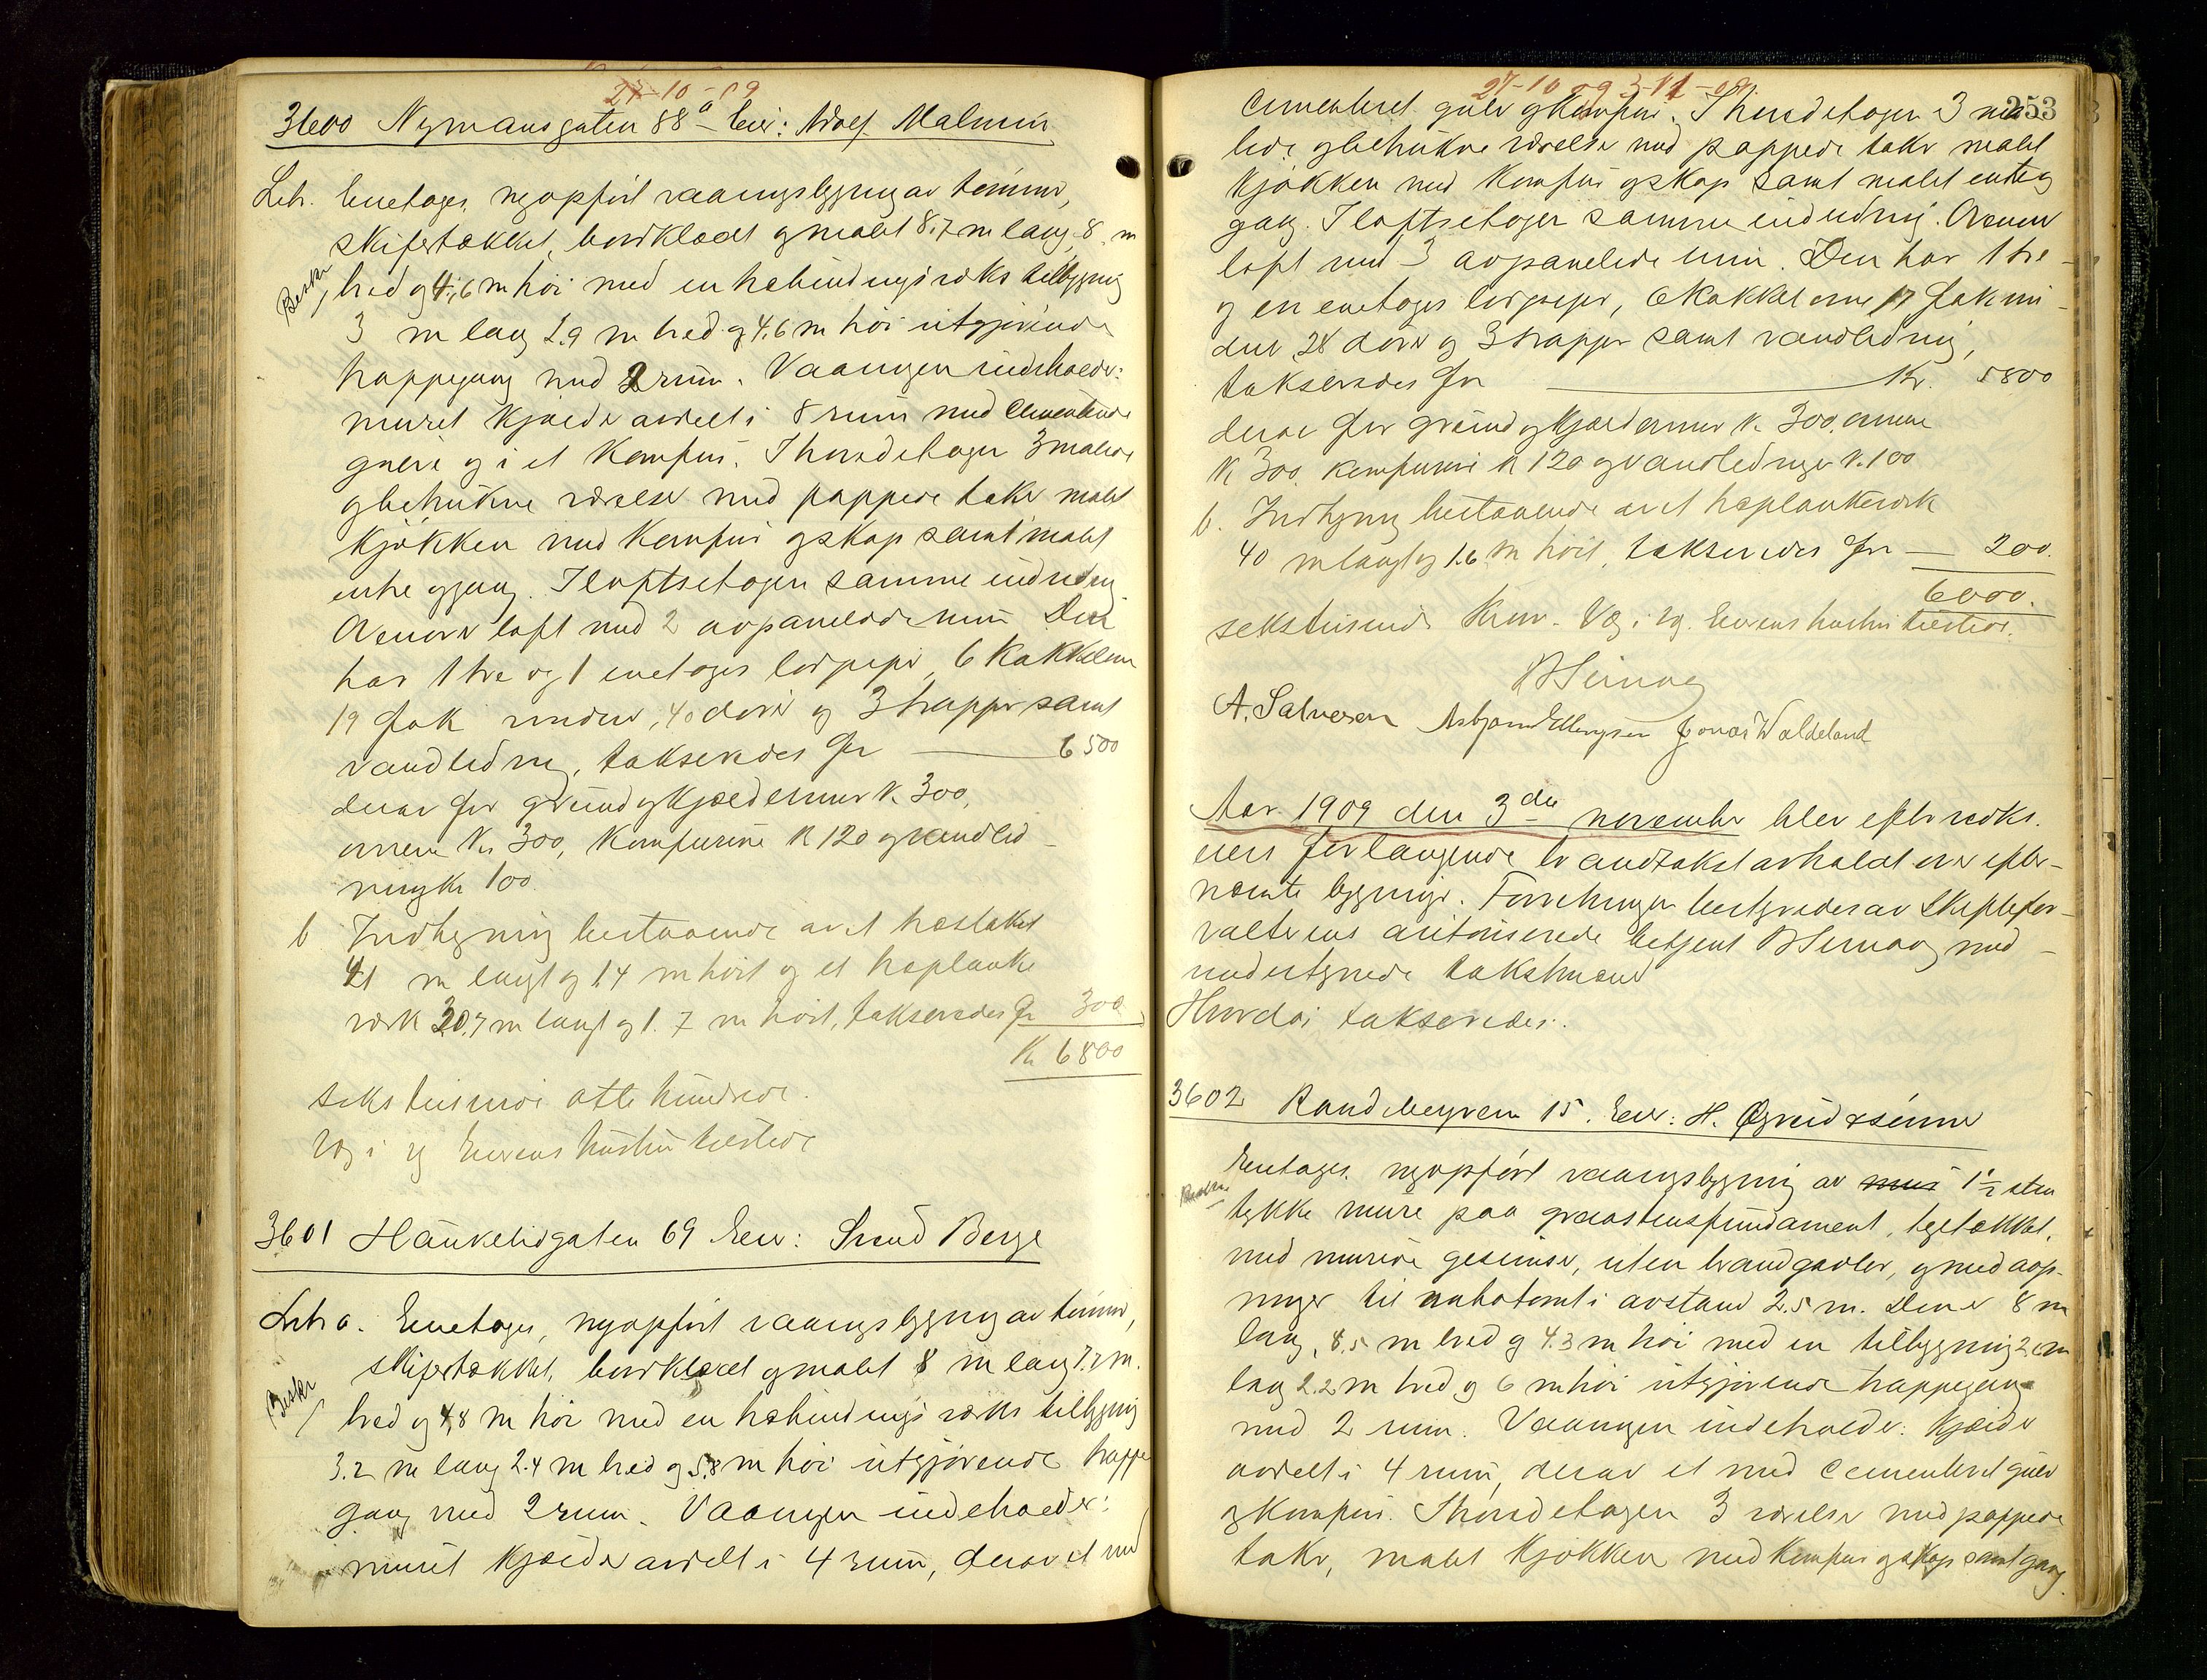 27-10-09
3600 Nymansgaten 88a Eier: Adolf Malmin
Litr. Enetages, nyopført vaaningsbygning av tømmer,
skifertækket, bordklædt og malet 8.7 m lang, 8 m
Beskr bred og 4,6 m høi med en halvbindingsverks tilbygning
3 m lang 2.9 m bred og 4.6 m høi utgjørende
trappegang med 2 rum. Vaaningen indeholder:
muret kjælder avdelt i 8 rum med cementerede
gulve og i et komfur. I hovedetagen 3 malede
og betrukne værelser med pappede taker malet
kjøkken med komfur og skap samt malet
entre og gang. I loftsetagen samme indredning.
Ovenover loft med 2 avpanelede rum Den
har 1 tre og 1 enetages lodpipe, 6 kakkelovne
19 fak vinduer, 40 dører og 3 trapper samt
vandledning, takseredes for 6500
derav for grund og kjældermur kr. 300,
ovnene kr 300, komfurene kr 120 og vandled-
ning kr 100
b Indhegning bestaaende av et træstaket
41 m langt og 1.4 m høit og et træplanke
verk 20,7 m langt og 1.7 m høit, takseredes for 300
Kr 6800
seks tusinde otte hundrede.
Vog i og Eierens hustru tilstede
3601 Haukelidgaten 69 Eier: Svend Berge
Litr a. Enetages, nyopført vaaningsbygning av tømmer,
skifertækket, bordklædt og malet 8 m lang 7.2 m.
Beskr bred og 4,8 m høi med en halvbindingsverks tilbygning
3.2 m lang 2.4 m bred og 5.8 m høi utgjørende trappe
gang med 2 rum. Vaaningen indeholder:
muret kjælder avdelt i 4 rum, derav et med
27-10 09 3-11-09.
353
cementeret gulv og komfur. I hovedetagen 3 ma-
lede og betrukne værelser med pappede taker malet
kjøkken med komfur og skap samt malet entre og
gang. I loftsetagen samme indredning. Ovenover
loft med 3 avpanelede rum. Den har 1 tre-
og en enetages lodpipe, 6 kakkelovne 17 fak vin-
duer 28 dører og 3 trapper samt vandledning,
takseredes for Kr. 5800
derav for grund og kjældermur kr. 300, ovnene
kr 300, komfurene kr 120 og vandledningen kr. 100
b. Indhegning bestaaende av et træplankeverk
40 m langt og 1.6 m høit, takseredes for 200.
6000.
sekstusinde kroner. Vog i og Eierens hustru tilstede.
A. Salvesen Asbjørn Ellingsen Jonas Waldeland
Aar 1909 den 3die november blev efter vedk.
eiers forlangende brandtakst avholdt over efter-
nævnte bygninger. Forretningen bestyredes av Skifteför-
valterens autoriserede betjent med
undertegnede takstmænd
Hvorda takseredes:
3602 Randebergveien 15. Eier: H. Øgreid & sønner
Beskr Enetages, nyopført vaaningsbygning av 1½ sten
tykke mure paa graastensfundament, tegltækket,
med murede gesimser, uten brandgavler, og med aap-
ninger til nabotomt i avstand 2.5 m. Den er 8 m
lang, 8,5 m bred og 4.3 m høi med en tilbygning 2.6 m
lang 2.2 m bred og 6 m høi utgjørende trappegang
med 2 rum. Vaaningen indeholder: kjælder
avdelt i 4 rum, derav et med cementeret gulv
og komfur. I hovedetagen 3 værelser med pappede
taker, malet kjøkken med komfur og skap samt gang.